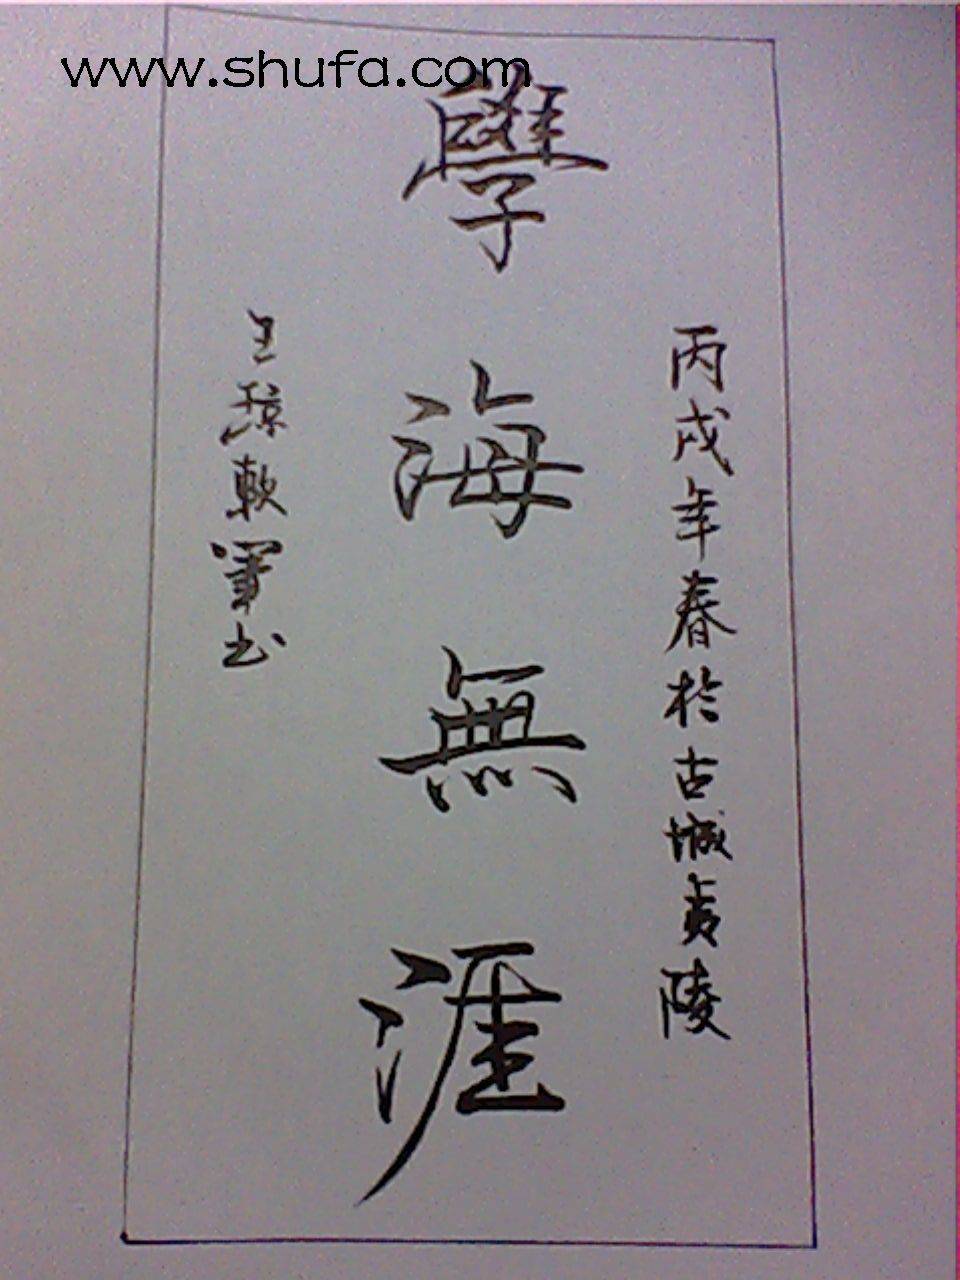 www.shufa.com
丙戌年春於古城夷陵
學海無涯
王琼軟筆书